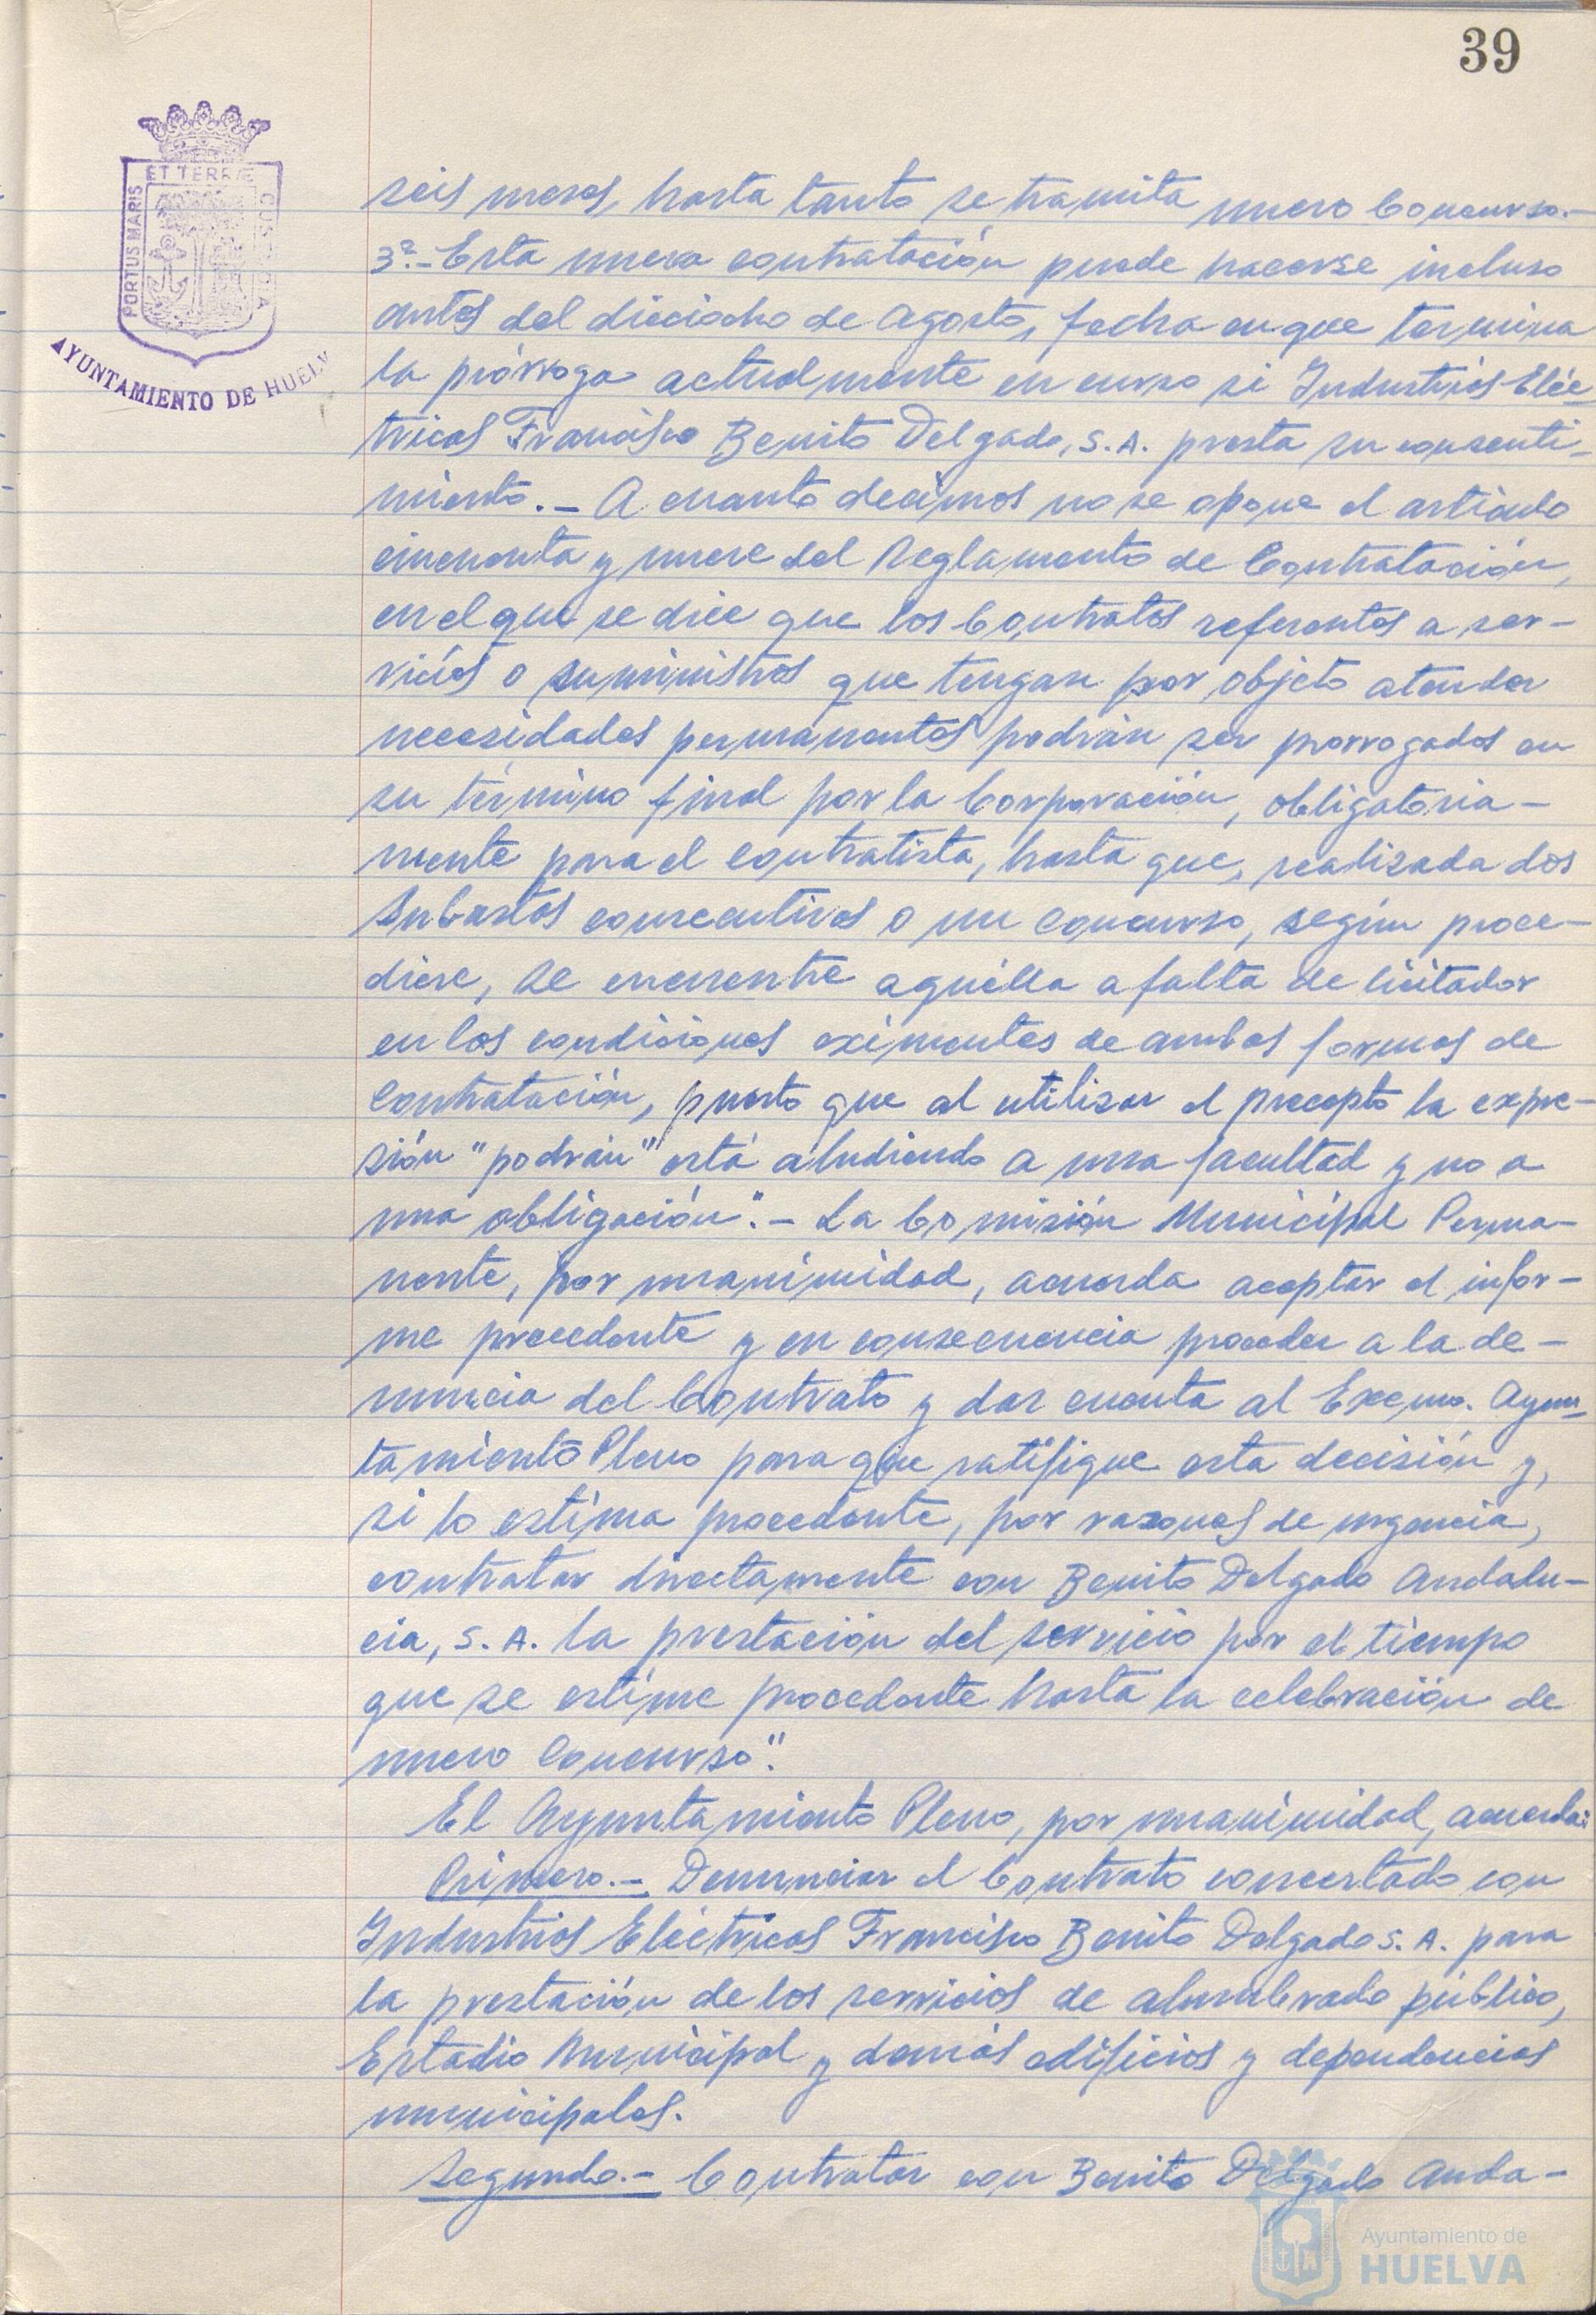 39
ET TERRÆ
PORTUS MARIS
CUSTODIA
AYUNTAMIENTO DE HUELV
seis meses, hasta tanto se tramita nuevo Concurso.-
3º.- Esta nueva contratación puede hacerse incluso
antes del dieciocho de Agosto, fecha en que termina
la prórroga actualmente en curso si Industrias Eléc-
tricas Francisco Benito Delgado, S.A. presta su consenti-
miento.- A cuanto decimos no se opone el artículo
cincuenta y nueve del Reglamento de Contratación,
en el que se dice que los Contratos referentes a ser-
vicios o suministros que tengan por objeto atender
necesidades permanentes podrán ser prorrogados en
su término final por la Corporación, obligatoria-
mente para el contratista, hasta que, realizada dos
Subastas consecutivas o un concurso, según proce-
diere, se encuentre aquélla a falta de licitador
en las condiciones eximentes de ambas formas de
contratación, puesto que al utilizar el precepto la expre-
sión "podrán" está aludiendo a una facultad y no a
una obligación".- La Comisión Municipal Perma-
nente, por unanimidad, acuerda aceptar el infor-
me precedente y en consecuencia proceder a la de-
nuncia del Contrato y dar cuenta al Excmo. Ayun-
tamiento Pleno para que ratifique esta decisión y,
si lo estima procedente, por razones de urgencia,
contratar directamente con Benito Delgado Andalu-
cia, S.A. la prestación del servicio por el tiempo
que se estime procedente hasta la celebración de
nuevo Concurso".
El Ayuntamiento Pleno, por unanimidad, acuerda:
Primero.- Denunciar el Contrato concertado con
Industrias Eléctricas Francisco Benito Delgado S.A. para
la prestación de los servicios de alumbrado público,
Estadio Municipal y demás edificios y dependencias
municipales.
Segundo.- Contratar con Benito Delgado Anda-
Ayuntamiento de
HUELVA